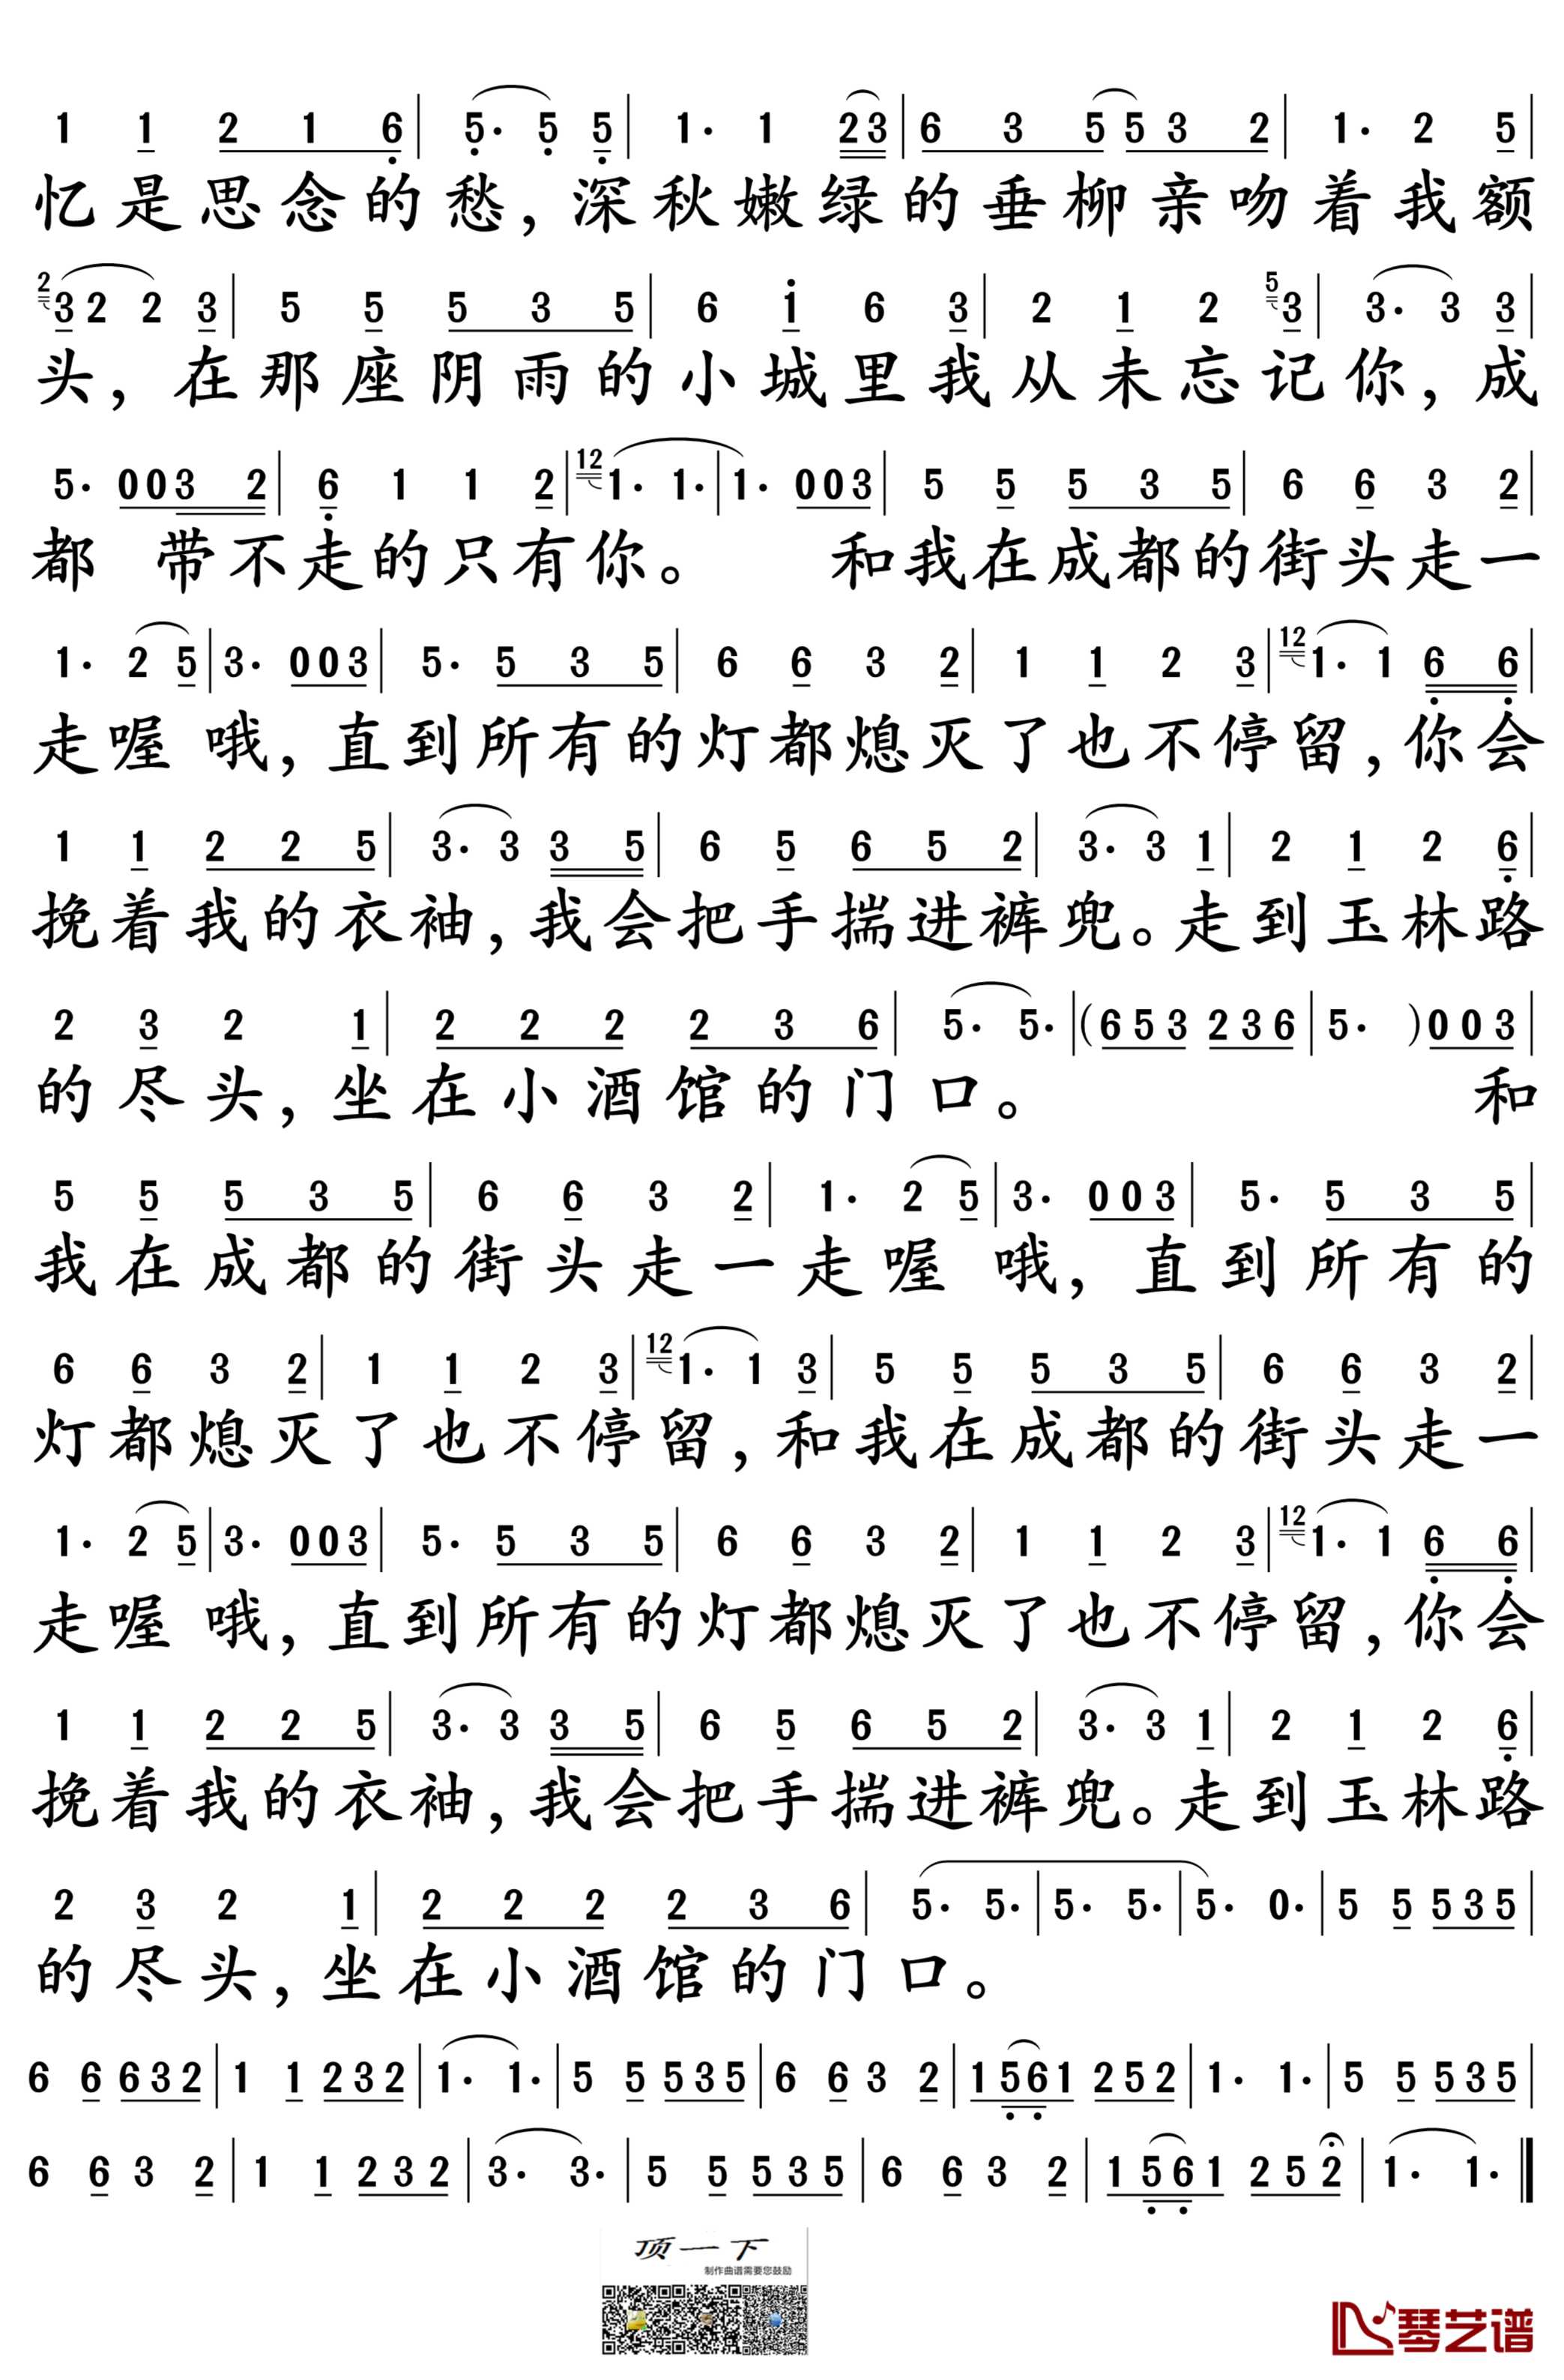 1 1 2 1 6 | 5· 5 5 | 1· 1 23 | 6 3 5 5 3 2 | 1· 2 5 |
忆是思念的愁,深秋嫩绿的垂柳亲吻着我额
2 3 2 2 3 | 5 5 5 3 5 | 6 1 6 3 | 2 1 2 5 3 | 3· 3 3 |
头,在那座阴雨的小城里我从未忘记你,成
5· 0 0 3 2 | 6 1 1 2 | 12 1· 1· | 1· 0 0 3 | 5 5 5 3 5 | 6 6 3 2 |
都 带不走的只有你。 和我在成都的街头走一
1· 2 5 | 3· 0 0 3 | 5· 5 3 5 | 6 6 3 2 | 1 1 2 3 | 12 1· 1 6 6 |
走喔 哦,直到所有的灯都熄灭了也不停留,你会
1 1 2 2 5 | 3· 3 3 5 | 6 5 6 5 2 | 3· 3 1 | 2 1 2 6 |
挽着我的衣袖,我会把手揣进裤兜。走到玉林路
2 3 2 1 | 2 2 2 2 3 6 | 5· 5· | (6 5 3 2 3 6 | 5· ) 0 0 3 |
的尽头,坐在小酒馆的门口。 和
5 5 5 3 5 | 6 6 3 2 | 1· 2 5 | 3· 0 0 3 | 5· 5 3 5 |
我在成都的街头走一走喔 哦,直到所有的
6 6 3 2 | 1 1 2 3 | 12 1· 1 3 | 5 5 5 3 5 | 6 6 3 2 |
灯都熄灭了也不停留,和我在成都的街头走一
1· 2 5 | 3· 0 0 3 | 5· 5 3 5 | 6 6 3 2 | 1 1 2 3 | 12 1· 1 6 6 |
走喔 哦,直到所有的灯都熄灭了也不停留,你会
1 1 2 2 5 | 3· 3 3 5 | 6 5 6 5 2 | 3· 3 1 | 2 1 2 6 |
挽着我的衣袖,我会把手揣进裤兜。走到玉林路
2 3 2 1 | 2 2 2 2 3 6 | 5· 5· | 5· 5· | 5· 0· | 5 5 5 3 5 |
的尽头,坐在小酒馆的门口。
6 6 6 3 2 | 1 1 2 3 2 | 1· 1· | 5 5 5 3 5 | 6 6 3 2 | 1 5 6 1 2 5 2 | 1· 1· | 5 5 5 3 5 |
6 6 3 2 | 1 1 2 3 2 | 3· 3· | 5 5 5 3 5 | 6 6 3 2 | 1 5 6 1 2 5 2 | 1· 1· ‖
顶一下
制作曲谱需要您鼓励
琴艺谱